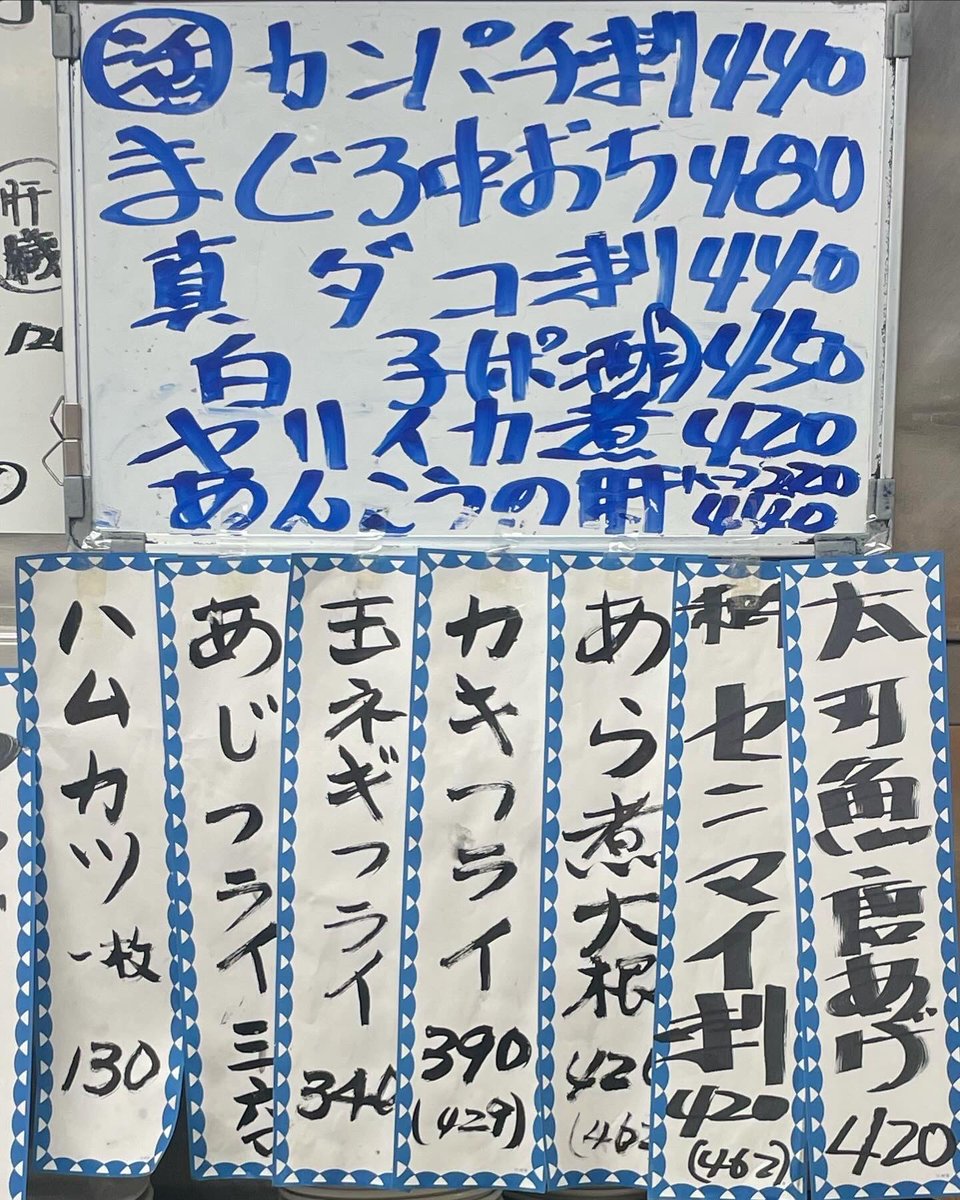 活 カンパチ刺 440
まぐろ中おち 480
真ダコ刺 440
白子ポン酢 450
ヤリイカ煮 420
あんこうの肝 ハーフ220
440
太刀魚唐あげ 420
セミマイ刺 420
(462)
あら煮大根 42
(462
カキフライ 390
(429)
玉ネギフライ 340
あじフライ 三六〇
ハムカツ 一枚 130
肝臓
12